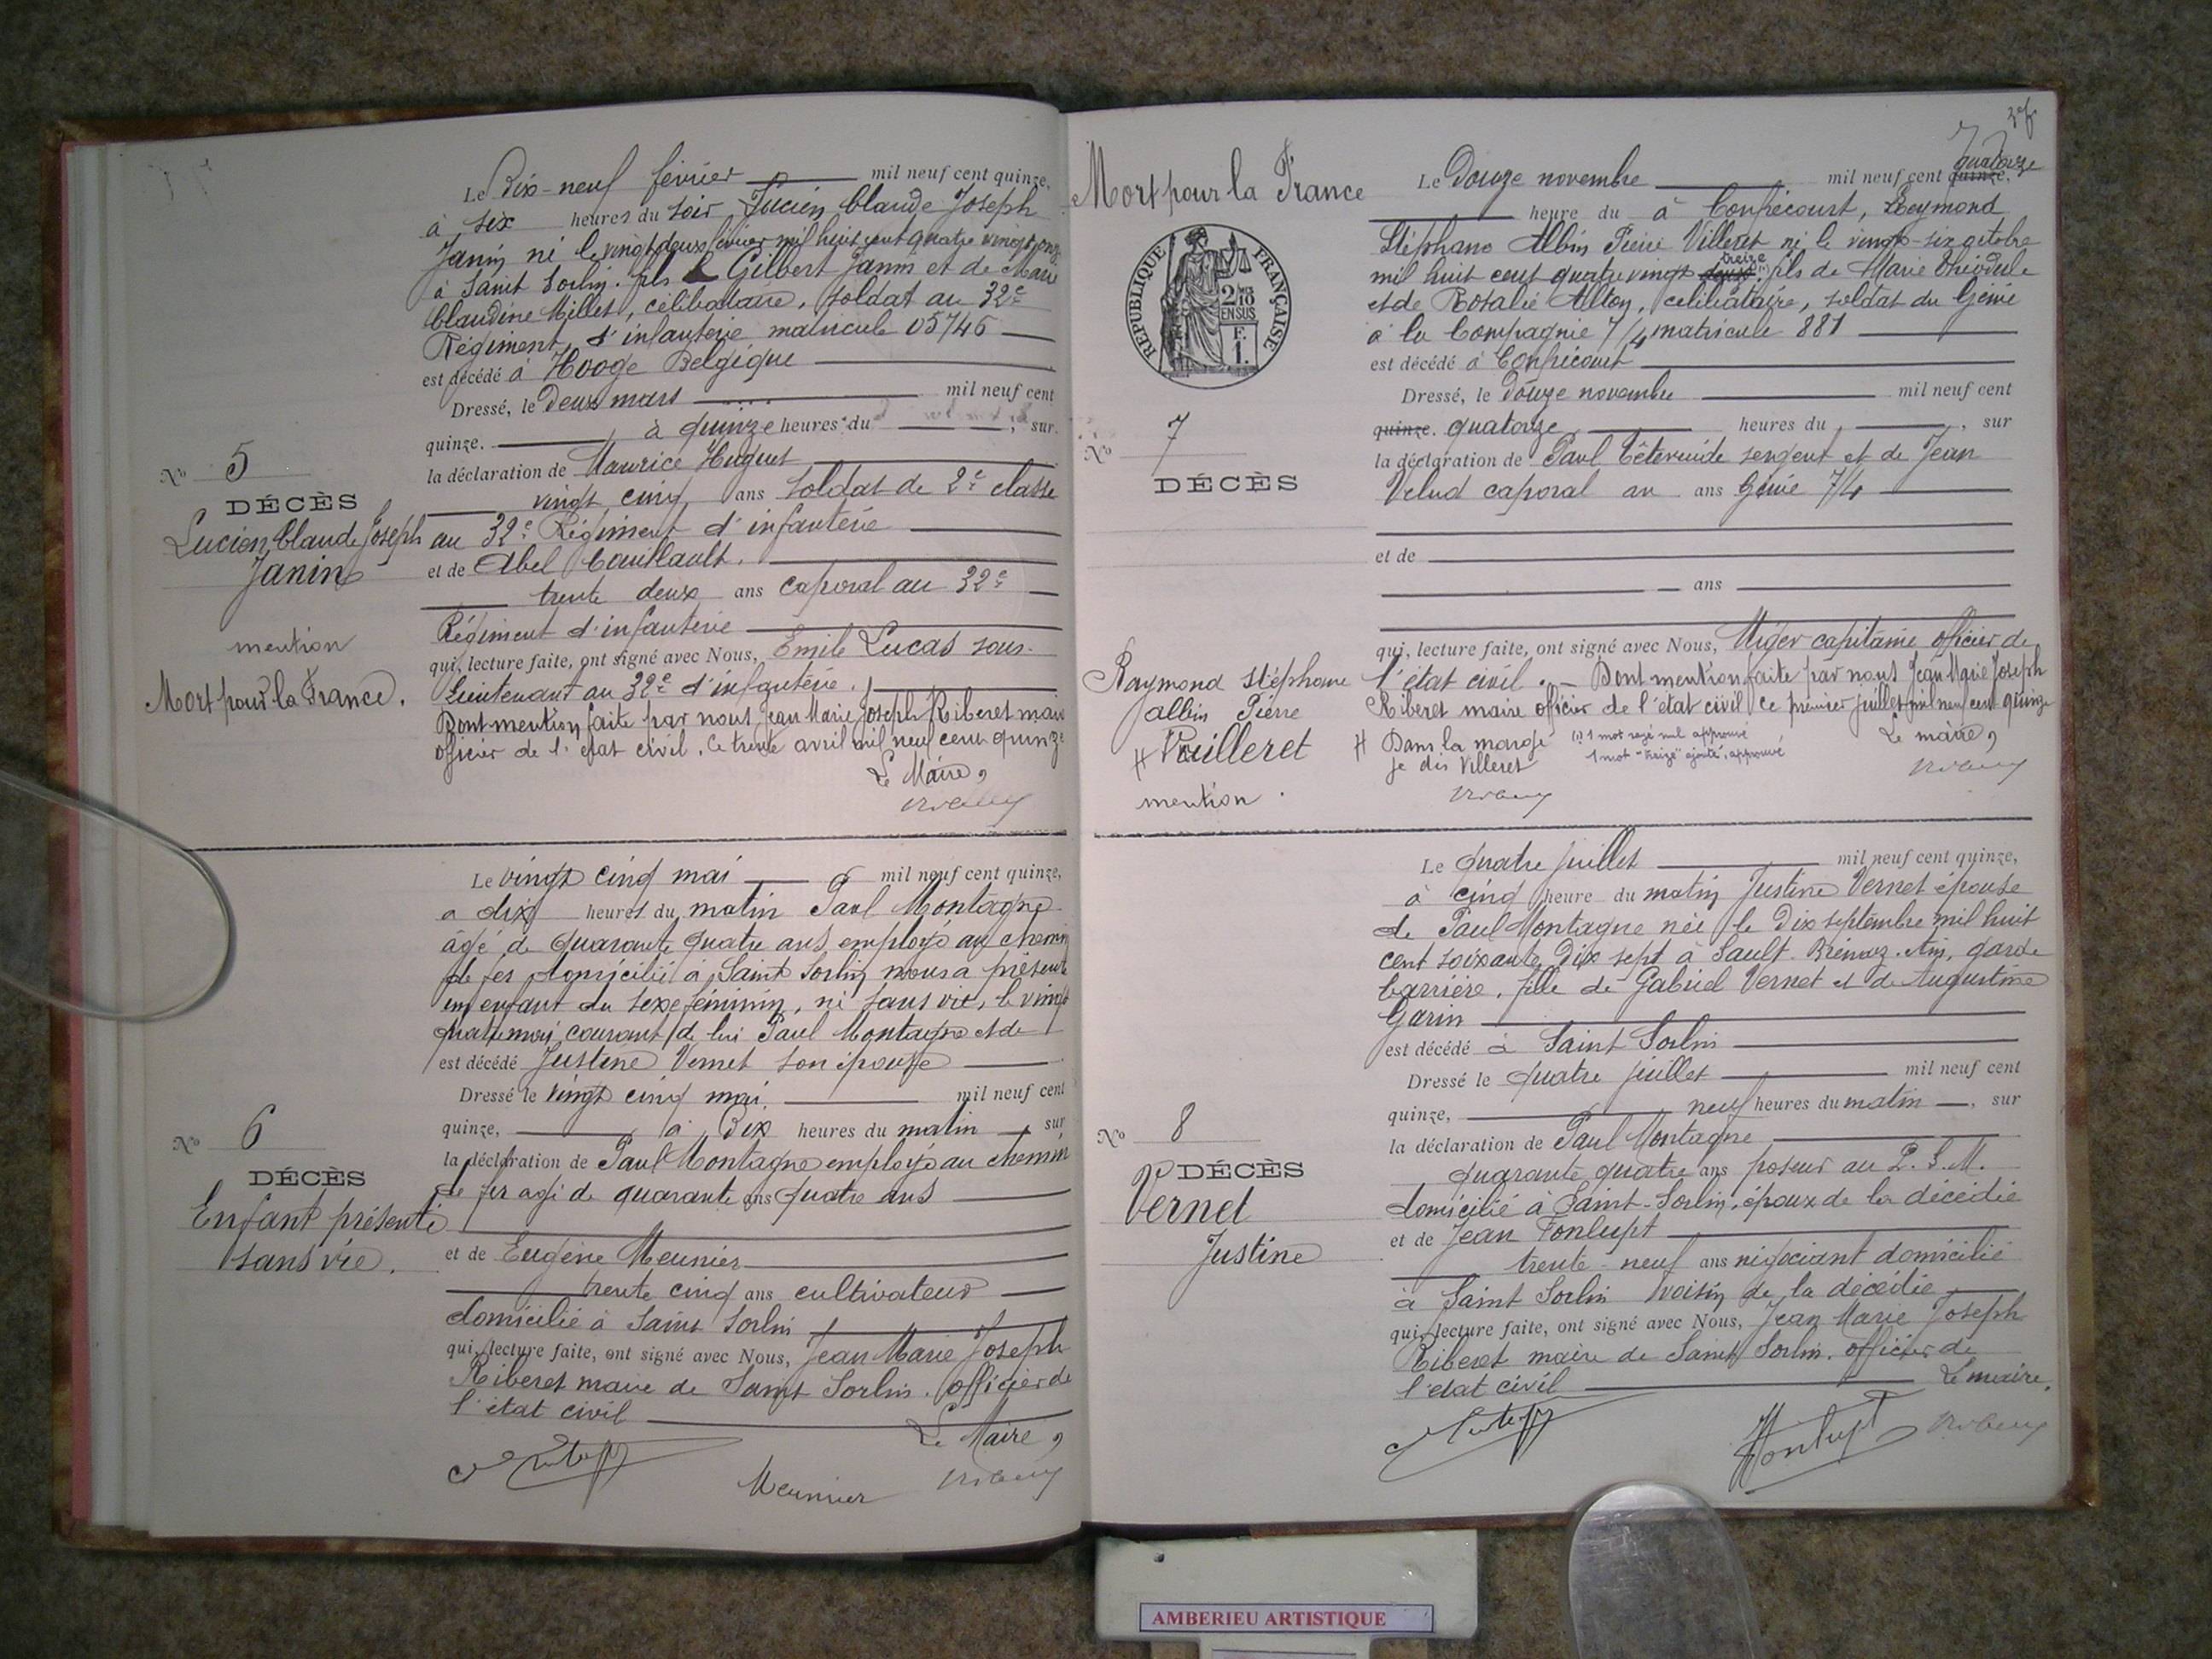 Le Dix-neuf février mil neuf cent quinze,
à six heures du soir Lucien Claude Joseph
Janin né le vingt deux février mil huit cent quatre vingt onze
à Saint Sorlin. fils de Gilbert Janin et de Marie
Claudine Millet, célibataire, soldat au 32e
Régiment d'infanterie matricule 05746
est décédé à Hooge Belgique
Dressé, le Deux mars mil neuf cent
quinze. à quinze heures du , sur
No 5
la déclaration de Maurice Huguet
DÉCÈS
vingt cinq ans soldat de 2e classe
Lucien, Claude Joseph
au 32e Régiment d'infanterie
Janin
et de Abel Couillault.
trente deux ans caporal au 32e
Régiment d'infanterie
mention
qui, lecture faite, ont signé avec Nous, Emile Lucas sous-
Mort pour la France.
lieutenant au 32e d'infanterie.
Dont mention faite par nous Jean Marie Joseph Riberet maire
officier de l'état civil. Ce trente avril mil neuf cent quinze
Le Maire,
Le vingt cinq mai mil neuf cent quinze,
a dix heures du matin Paul Montagne
âgé de quarante quatre ans employé au chemin
de fer domicilié à Saint Sorlin nous a présenté
un enfant du sexe féminin, né sans vie, le vingt
quatre mai courant de lui Paul Montagne et de
est décédé Justine Vernet son épouse
Dressé le vingt cinq mai. mil neuf cent
quinze, à Dix heures du matin , sur
No 6
la déclaration de Paul Montagne employé au chemin
DÉCÈS
de fer agé de quarante ans quatre ans
Enfant présenté
sans vie.
et de Eugène Meunier
trente cinq ans cultivateur
domicilié à Saint Sorlin
qui, lecture faite, ont signé avec Nous, Jean Marie Joseph
Riberet maire de Saint Sorlin. officier de
l'état civil
Le Maire,
Meunier
Mort pour la France
RÉPUBLIQUE FRANÇAISE
2/10
EN SUS
F.
1.
quatorze
Le Douze novembre mil neuf cent quinze,
heure du à Confrécourt, Reymond
Stéphane Albin Pierre Villeret né le vingt-six octobre
treize
mil huit cent quatre vingt fils de Marie Théodule
et de Rosalie Alloy, célibataire, soldat du Génie
à la Compagnie 7/4 matricule 881
est décédé à Confrécourt
Dressé, le Douze novembre mil neuf cent
quinze. quatorze heures du , sur
No 7
la déclaration de Paul Têtevuide sergent et de Jean
DÉCÈS
Velud caporal au ans Génie 7/4
et de
ans
qui, lecture faite, ont signé avec Nous, Miger capitaine officier de
Raymond Stéphane
l'état civil. Dont mention faite par nous Jean Marie Joseph
albin Pierre
Riberet maire officier de l'état civil Ce premier juillet mil neuf cent quinze
Vuilleret
Dans la marge
je dis Villeret
(1) 1 mot rayé nul approuvé
1 mot "treize" ajouté, approuvé
Le maire,
mention
Le quatre juillet mil neuf cent quinze,
à cinq heure du matin Justine Vernet épouse
de Paul Montagne née le Dix septembre mil huit
cent soixante Dix sept à Sault-Brénaz. Ain, garde
barrière. fille de Gabriel Vernet et de Augustine
Garin
est décédé à Saint Sorlin
Dressé le quatre juillet mil neuf cent
quinze, neuf heures du matin , sur
No 8
la déclaration de Paul Montagne
DÉCÈS
quarante quatre ans poseur au P.L.M.
Vernet
domicilié à Saint-Sorlin, époux de la décédée
Justine
et de Jean Fonlupt
trente-neuf ans négociant domicilié
à Saint Sorlin voisin de la décédée
qui, lecture faite, ont signé avec Nous, Jean Marie Joseph
Riberet maire de Saint Sorlin. officier de
l'état civil
Le maire,
Fonlupt
AMBERIEU ARTISTIQUE